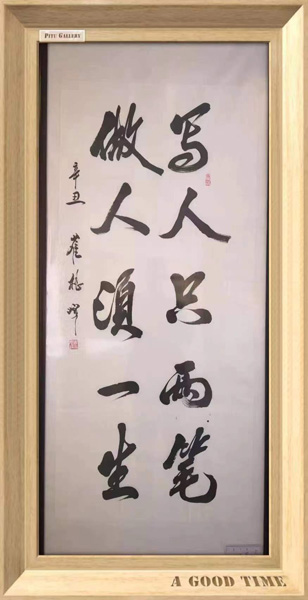 PITU GALLERY
写人只两笔
做人须一生
辛丑
A GOOD TIME